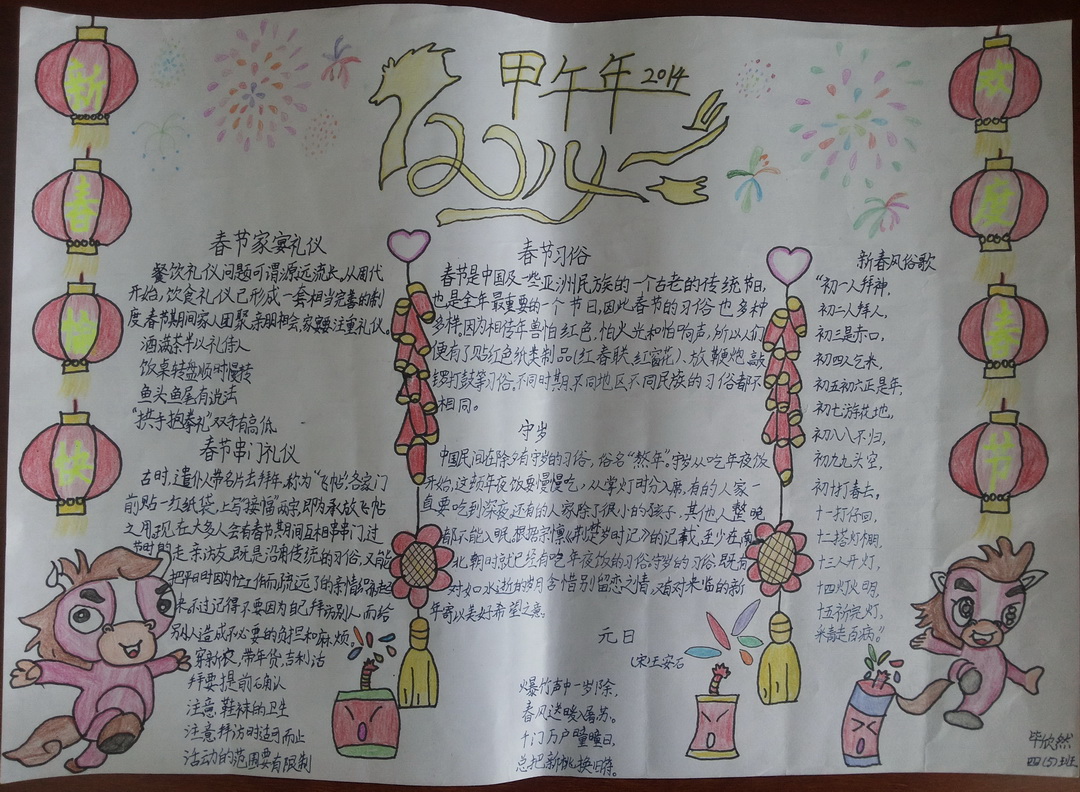 甲午年 2014
新
春
愉
快
欢
度
春
节
春节家宴礼仪
餐饮礼仪问题可谓源远流长,从周代
开始,饮食礼仪已形成一套相当完善的制
度,春节期间家人团聚,亲朋相会,家宴要注重礼仪。
酒满茶半以礼待人
饭桌转盘顺时慢转
鱼头鱼尾有说法
"拱手抱拳礼"双手有高低
春节串门礼仪
古时,遣仆人带名片去拜年,称为"飞帖",各家门
前贴一红纸袋,上写"接福"两字,即为承放飞帖
之用,现在大多人会有春节期间互相串串门,过
节时间走亲访友,既是沿有传统的习俗,又能
把平时因为忙工作而疏远了的亲情给补起
来,不过记得不要因为自己拜访别人而给
别人造成不必要的负担和麻烦。
穿新衣,带年货,吉利话
拜要提前确认
注意鞋袜的卫生
注意拜访时适可而止
活动的范围要有限制
春节习俗
春节是中国及一些亚洲民族的一个古老的传统节日,
也是全年最重要的一个节日,因此春节的习俗也多种
多样,因为相传年兽怕红色,怕火光和怕响声,所以人们
便有了贴红色纸类制品(红春联、红窗花)、放鞭炮、敲
锣打鼓等习俗,不同时期、不同地区、不同民族的习俗都不
相同。
守岁
中国民间在除夕有守岁的习俗,俗名"熬年"。守岁从吃年夜饭
开始,这顿年夜饭要慢慢吃,从掌灯时分入席,有的人家一
直要吃到深夜,还有的人家除了很小的孩子,其他人整晚
都不能入眠,根据宗懔《荆楚岁时记》的记载,至少在南
北朝时就已经有吃年夜饭的习俗,守岁的习俗,既有
对如水逝的岁月含惜别留恋之情,又有对来临的新
年寄以美好希望之意。
元日
(宋)王安石
爆竹声中一岁除,
春风送暖入屠苏。
千门万户曈曈日,
总把新桃换旧符。
新春风俗歌
"初一人拜神,
初二人拜人,
初三是赤口,
初四人乞米,
初五初六正是年,
初七游花地,
初八八不归,
初九九头空,
初十打春去,
十一打仔回,
十二搭灯棚,
十三人开灯,
十四灯火明,
十五祈完灯,
采青走百病。"
毕欣然
四(5)班